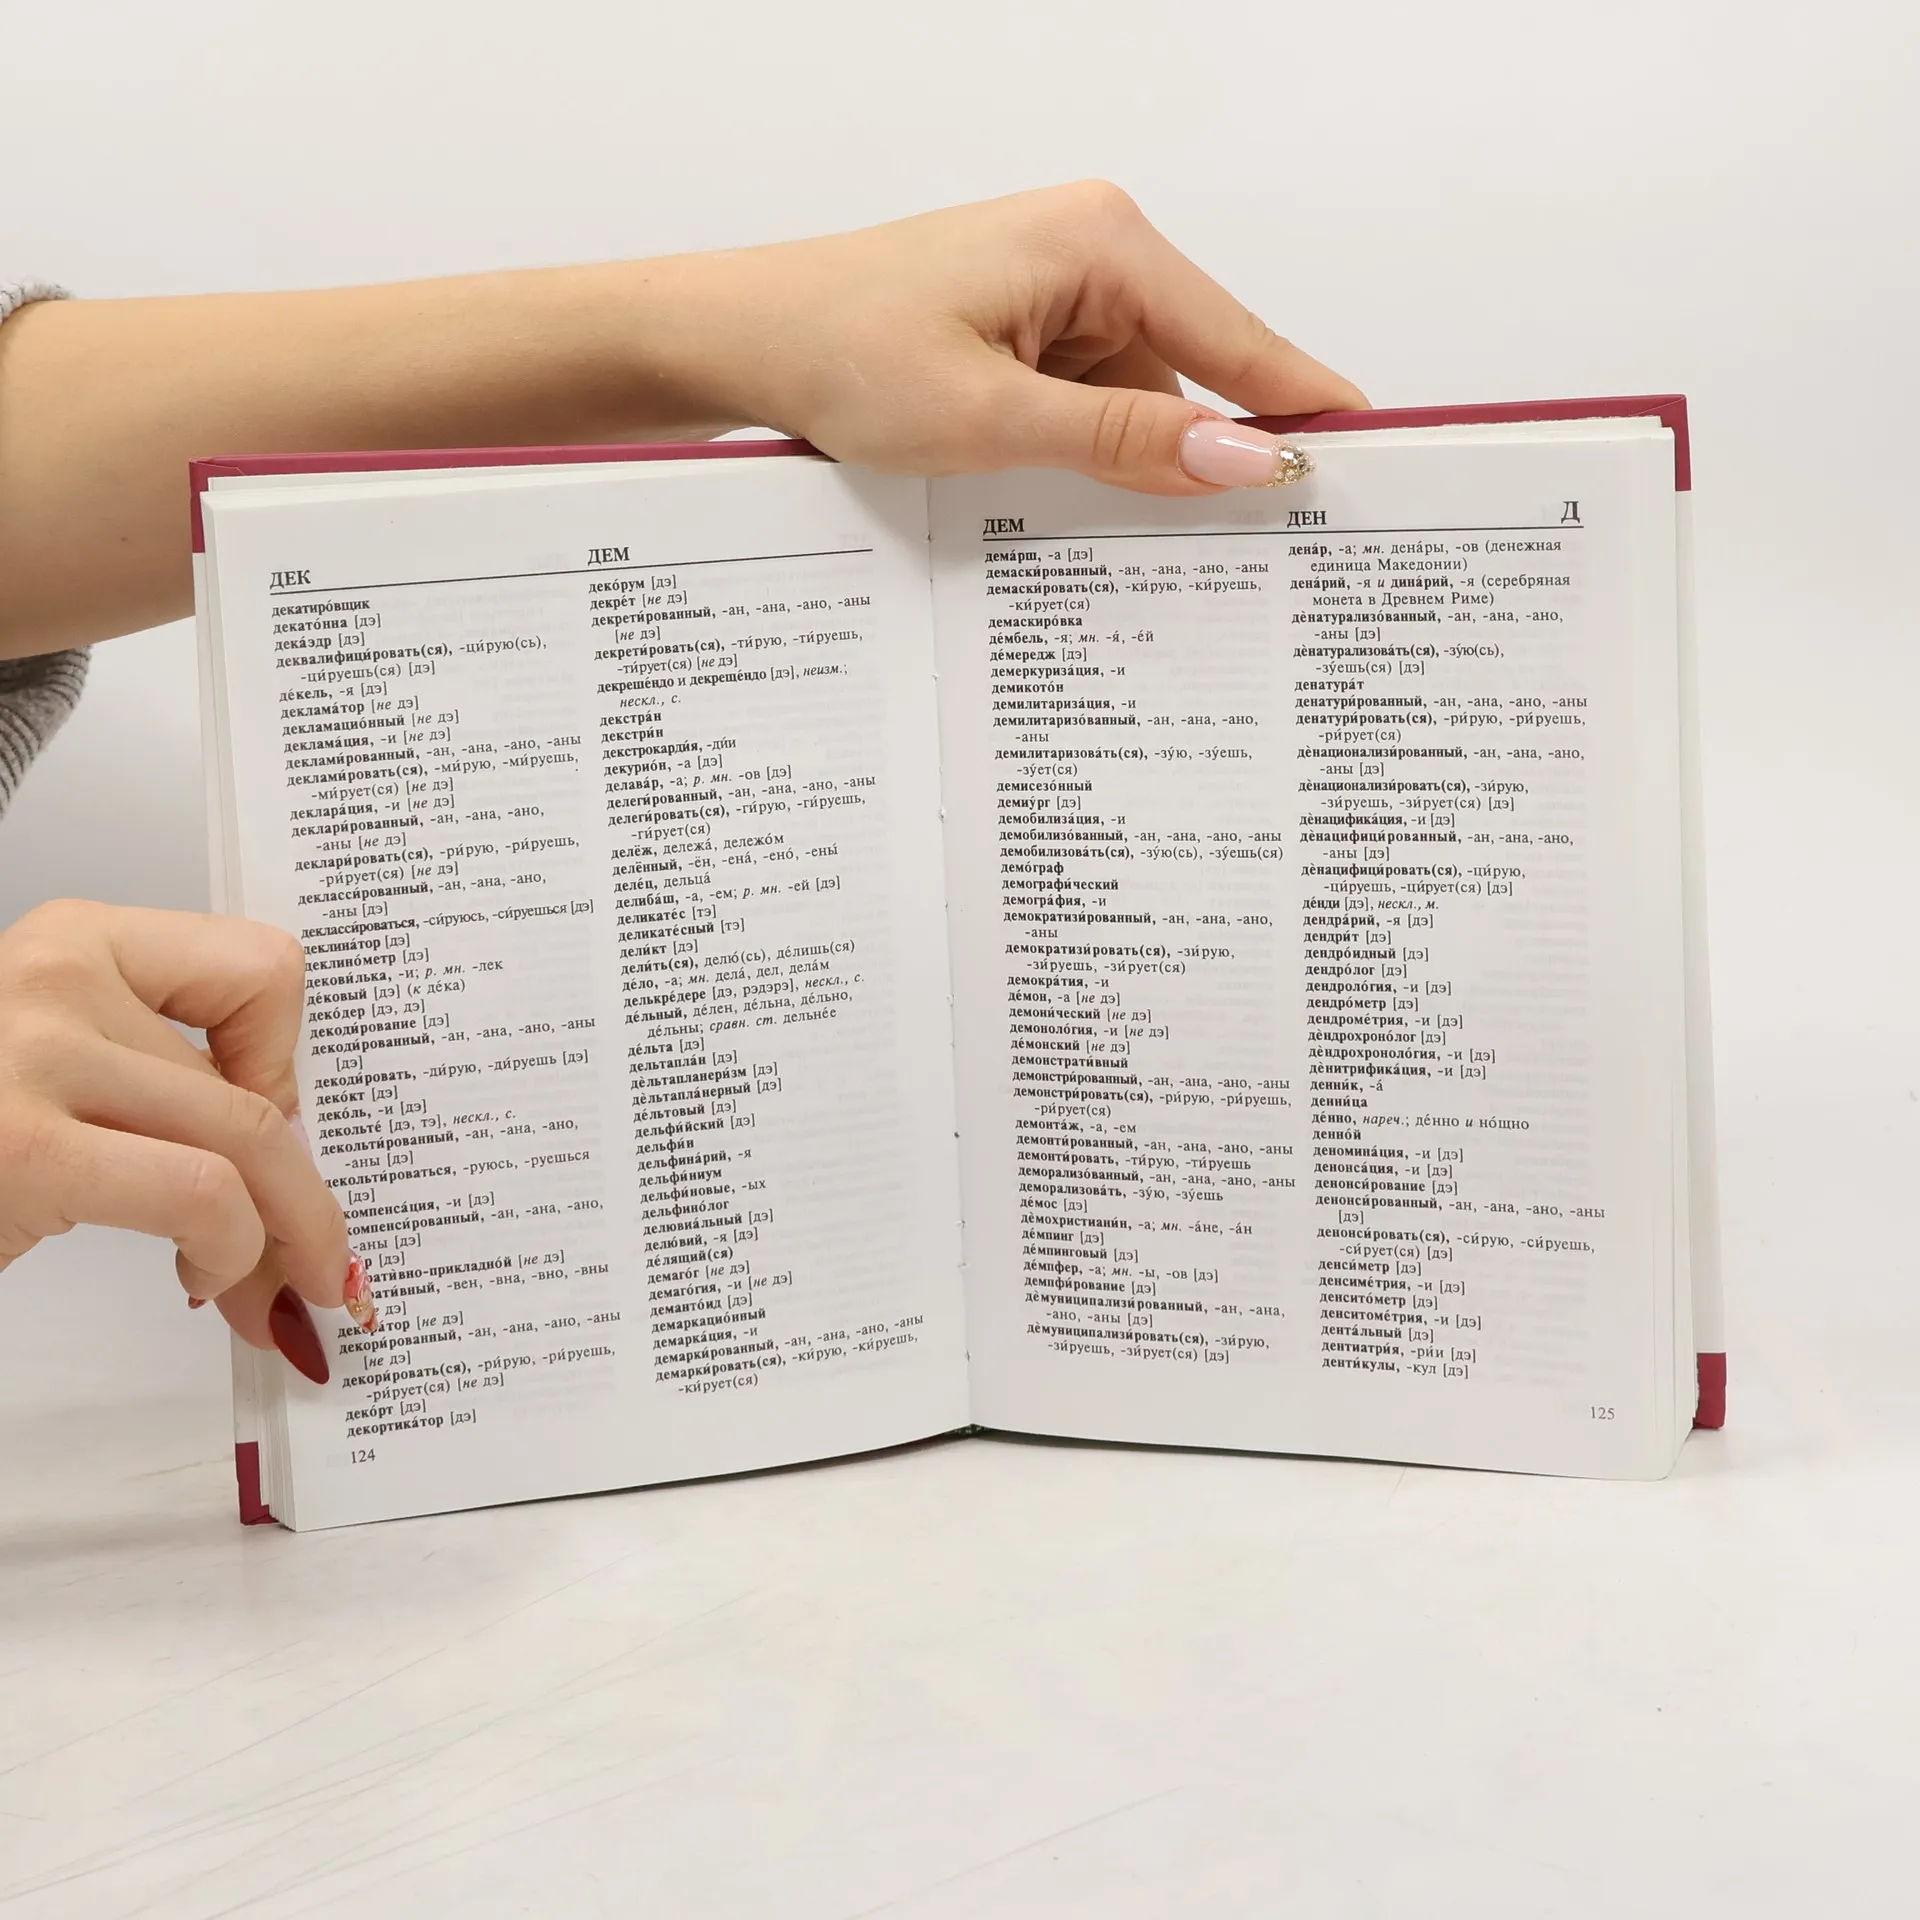 ДЕК
декатиро́вщик
декато́нна [дэ]
дека́эдр [дэ]
деквалифици́ровать(ся), -ци́рую(сь),
-ци́руешь(ся) [дэ]
де́кель, -я [дэ]
деклама́тор [не дэ]
декламацио́нный [не дэ]
деклама́ция, -и [не дэ]
деклами́рованный, -ан, -ана, -ано, -аны
деклами́ровать(ся), -ми́рую, -ми́руешь,
-ми́рует(ся) [не дэ]
деклара́ция, -и [не дэ]
деклари́рованный, -ан, -ана, -ано,
-аны [не дэ]
деклари́ровать(ся), -ри́рую, -ри́руешь,
-ри́рует(ся) [не дэ]
деклассированный, -ан, -ана, -ано,
-аны [дэ]
деклассироваться, -си́руюсь, -си́руешься [дэ]
деклина́тор [дэ]
деклино́метр [дэ]
декови́лька, -и; р. мн. -лек
де́ковый [дэ] (к де́ка)
деко́дер [дэ, дэ]
декоди́рование [дэ]
декоди́рованный, -ан, -ана, -ано, -аны
[дэ]
декоди́ровать, -ди́рую, -ди́руешь [дэ]
деко́кт [дэ]
деко́ль, -и [дэ]
декольте́ [дэ, тэ], нескл., с.
декольти́рованный, -ан, -ана, -ано,
-аны [дэ]
декольти́роваться, -руюсь, -руешься
[дэ]
компенса́ция, -и [дэ]
компенси́рованный, -ан, -ана, -ано,
-аны [дэ]
р [дэ]
рати́вно-прикладно́й [не дэ]
рати́вный, -вен, -вна, -вно, -вны
дэ]
декора́тор [не дэ]
декори́рованный, -ан, -ана, -ано, -аны
[не дэ]
декори́ровать(ся), -ри́рую, -ри́руешь,
-ри́рует(ся) [не дэ]
деко́рт [дэ]
декортика́тор [дэ]
124
ДЕМ
деко́рум [дэ]
декре́т [не дэ]
декрети́рованный, -ан, -ана, -ано, -аны
[не дэ]
декрети́ровать(ся), -ти́рую, -ти́руешь,
-ти́рует(ся) [не дэ]
декреше́ндо и декреще́ндо [дэ], неизм.;
нескл., с.
декстра́н
декстри́н
декстрокарди́я, -ди́и
декурио́н, -а [дэ]
делава́р, -а; р. мн. -ов [дэ]
делеги́рованный, -ан, -ана, -ано, -аны
делеги́ровать(ся), -ги́рую, -ги́руешь,
-ги́рует(ся)
делёж, дележа́, дележо́м
делённый, -ён, -ена́, -ено́, -ены́
деле́ц, дельца́
делиба́ш, -а, -ем; р. мн. -ей [дэ]
деликате́с [тэ]
деликате́сный [тэ]
дели́кт [дэ]
дели́ть(ся), делю́(сь), де́лишь(ся)
де́ло, -а; мн. дела́, дел, дела́м
делькре́дере [дэ, рэдэрэ], нескл., с.
де́льный, де́лен, де́льна, де́льно,
де́льны; сравн. ст. дельне́е
де́льта [дэ]
дельтапла́н [дэ]
дѐльтапланери́зм [дэ]
дѐльтапла́нерный [дэ]
де́льтовый [дэ]
дельфи́йский [дэ]
дельфи́н
дельфина́рий, -я
дельфи́ниум
дельфи́новые, -ых
дельфино́лог
делювиа́льный [дэ]
делю́вий, -я [дэ]
де́лящий(ся)
демаго́г [не дэ]
демаго́гия, -и [не дэ]
деманто́ид [дэ]
демаркацио́нный
демарка́ция, -и
демарки́рованный, -ан, -ана, -ано, -аны
демарки́ровать(ся), -ки́рую, -ки́руешь,
-ки́рует(ся)
ДЕМ
дема́рш, -а [дэ]
демаски́рованный, -ан, -ана, -ано, -аны
демаски́ровать(ся), -ки́рую, -ки́руешь,
-ки́рует(ся)
демаскиро́вка
де́мбель, -я; мн. -я́, -е́й
де́мередж [дэ]
демеркуриза́ция, -и
демикото́н
демилитариза́ция, -и
демилитаризо́ванный, -ан, -ана, -ано,
-аны
демилитаризова́ть(ся), -зу́ю, -зу́ешь,
-зу́ет(ся)
демисезо́нный
демиу́рг [дэ]
демобилиза́ция, -и
демобилизо́ванный, -ан, -ана, -ано, -аны
демобилизова́ть(ся), -зу́ю(сь), -зу́ешь(ся)
демо́граф
демографи́ческий
демогра́фия, -и
демократизи́рованный, -ан, -ана, -ано,
-аны
демократизи́ровать(ся), -зи́рую,
-зи́руешь, -зи́рует(ся)
демокра́тия, -и
де́мон, -а [не дэ]
демони́ческий [не дэ]
демоноло́гия, -и [не дэ]
де́монский [не дэ]
демонстрати́вный
демонстри́рованный, -ан, -ана, -ано, -аны
демонстри́ровать(ся), -ри́рую, -ри́руешь,
-ри́рует(ся)
демонта́ж, -а, -ем
демонти́рованный, -ан, -ана, -ано, -аны
демонти́ровать, -ти́рую, -ти́руешь
деморализо́ванный, -ан, -ана, -ано, -аны
деморализова́ть, -зу́ю, -зу́ешь
де́мос [дэ]
дѐмохристиани́н, -а; мн. -а́не, -а́н
де́мпинг [дэ]
де́мпинговый [дэ]
де́мпфер, -а; мн. -ы, -ов [дэ]
демпфи́рование [дэ]
дѐмуниципализи́рованный, -ан, -ана,
-ано, -аны [дэ]
дѐмуниципализи́ровать(ся), -зи́рую,
-зи́руешь, -зи́рует(ся) [дэ]
ДЕН
Д
дена́р, -а; мн. дена́ры, -ов (денежная
единица Македонии)
дена́рий, -я и дина́рий, -я (серебряная
монета в Древнем Риме)
дѐнатурализо́ванный, -ан, -ана, -ано,
-аны [дэ]
дѐнатурализова́ть(ся), -зу́ю(сь),
-зу́ешь(ся) [дэ]
денатура́т
денатури́рованный, -ан, -ана, -ано, -аны
денатури́ровать(ся), -ри́рую, -ри́руешь,
-ри́рует(ся)
дѐнационализи́рованный, -ан, -ана, -ано,
-аны [дэ]
дѐнационализи́ровать(ся), -зи́рую,
-зи́руешь, -зи́рует(ся) [дэ]
дѐнацифика́ция, -и [дэ]
дѐнацифици́рованный, -ан, -ана, -ано,
-аны [дэ]
дѐнацифици́ровать(ся), -ци́рую,
-ци́руешь, -ци́рует(ся) [дэ]
де́нди [дэ], нескл., м.
дендра́рий, -я [дэ]
дендри́т [дэ]
дендро́идный [дэ]
дендро́лог [дэ]
дендроло́гия, -и [дэ]
дендро́метр [дэ]
дендроме́трия, -и [дэ]
дѐндрохроно́лог [дэ]
дѐндрохроноло́гия, -и [дэ]
дѐнитрифика́ция, -и [дэ]
денни́к, -а́
денни́ца
де́нно, нареч.; де́нно и но́щно
денно́й
деномина́ция, -и [дэ]
денонса́ция, -и [дэ]
денонси́рование [дэ]
денонси́рованный, -ан, -ана, -ано, -аны
[дэ]
денонси́ровать(ся), -си́рую, -си́руешь,
-си́рует(ся) [дэ]
денси́метр [дэ]
денсиме́трия, -и [дэ]
денсито́метр [дэ]
денситоме́трия, -и [дэ]
дента́льный [дэ]
дентиатри́я, -ри́и [дэ]
денти́кулы, -кул [дэ]
125